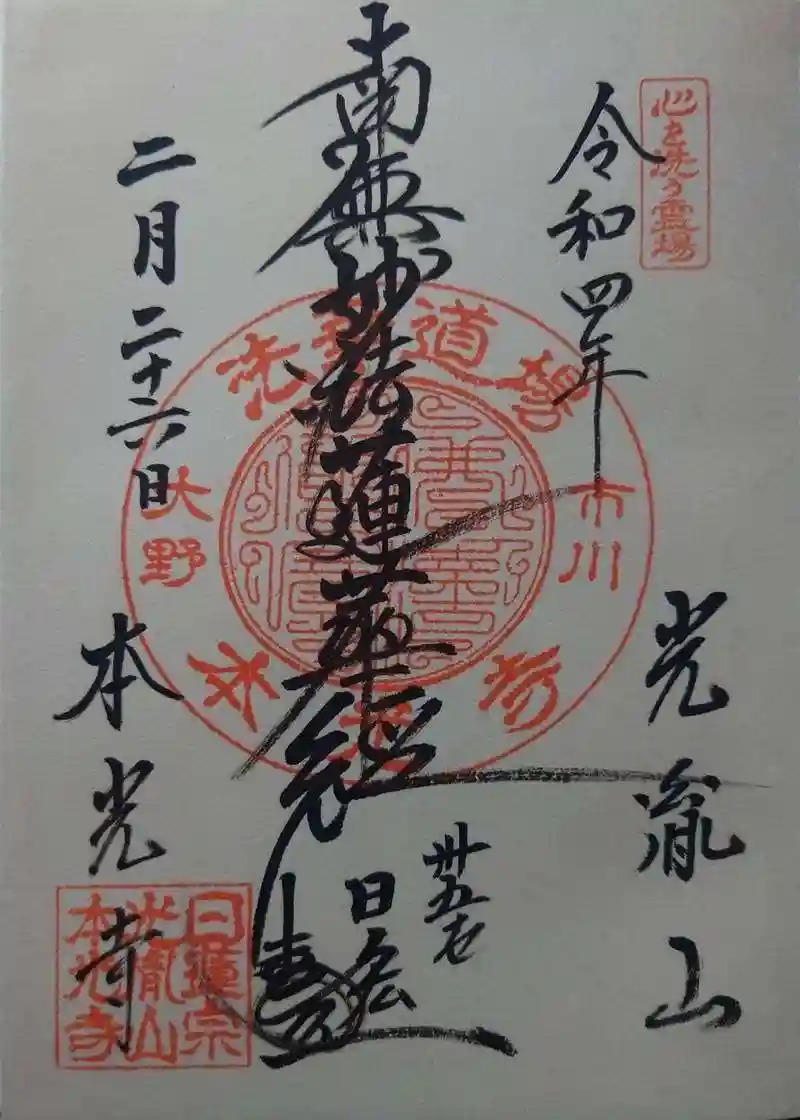 心を洗う霊場
令和四年
光胤山
市川
卅五世
日
南無妙法蓮華経
道
洗
大野
二月二十六日
本光寺
日蓮宗
光胤山
本光寺